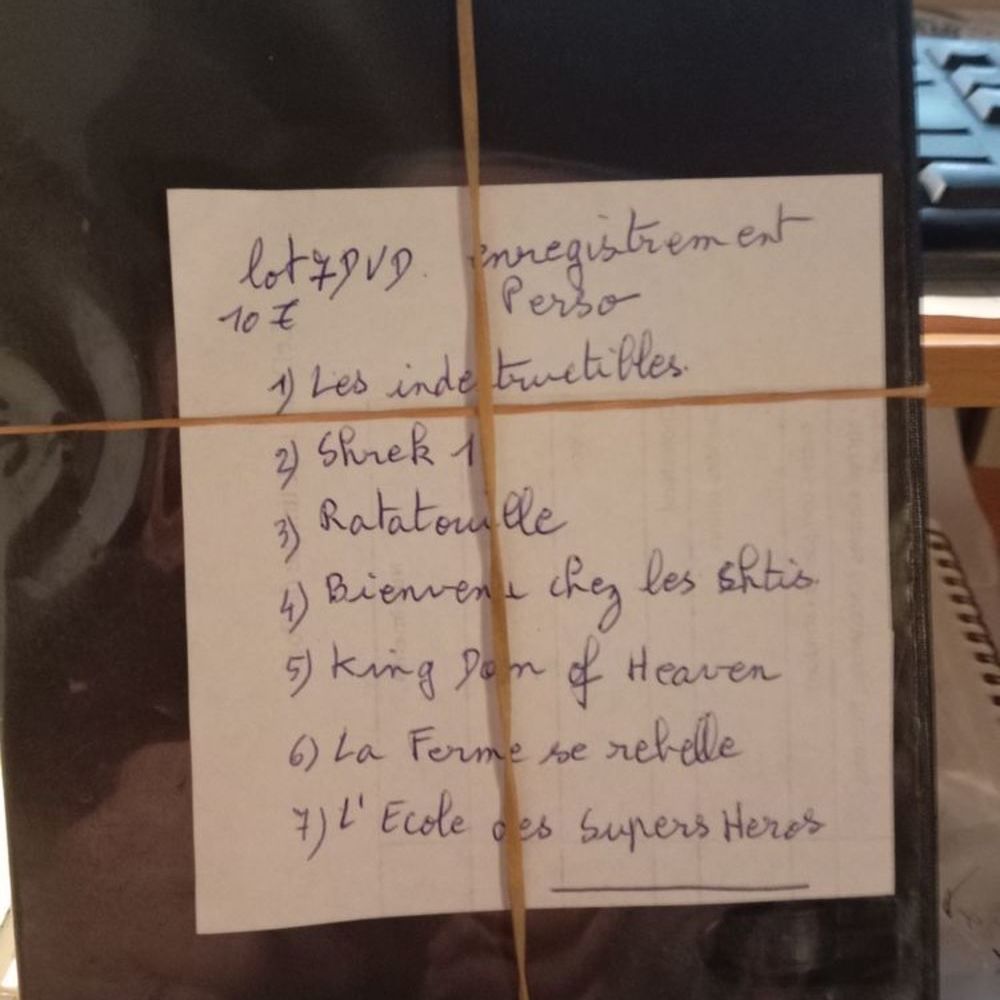 lot 7 DVD. enregistrement
10 € Perso
1) Les indestructibles.
2) Shrek 1
3) Ratatouille
4) Bienvenu chez les shtis.
5) King Dom of Heaven
6) La Ferme se rebelle
7) L'Ecole des Supers Heros